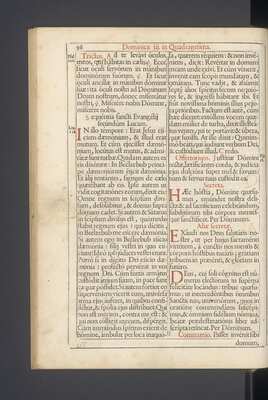 98 Dominica iij in Quadragesima.
Tractus. Ad te levavi oculos
meos, qui habitas in cælis. Ecce
sicut oculi servorum in manibus
dominorum suorum. Et sicut
oculi ancillæ in manibus dominæ
suæ: ita oculi nostri ad Dominum
Deum nostrum, donec misereatur
nostri, Miserere nobis Domine,
miserere nobis.
Sequentia sancti Evangelij
secundum Lucam.
In illo tempore: Erat Jesus eij-
ciens dæmonium, & illud erat
mutum. Et cum ejecisset dæmo-
nium, locutus est mutus, & admira-
tæ sunt turbæ. Quidam autem ex
eis dixerunt: In Beelzebub princi-
pe dæmoniorum eijcit dæmonia.
Et alij tentantes, signum de cælo
quærebant ab eo. Ipse autem ut
vidit cogitationes eorum, dixit eis:
Omne regnum in seipsum divi-
sum, desolabitur, & domus supra
domum cadet. Si autem & Satanas
in seipsum divisus est, quomodo
stabit regnum ejus? quia dicitis,
in Beelzebub me eijcere dæmonia.
Si autem ego in Beelzebub eijcio
dæmonia: filij vestri in quo eij-
ciunt? Ideo ipsi judices vestri erunt.
Porro si in digito Dei eijcio dæ-
monia: profecto pervenit in vos
regnum Dei. Cum fortis armatus
custodit atrium suum, in pace sunt
ea quæ possidet. Si autem fortior eo
superveniens vicerit eum, universa
arma ejus auferet, in quibus confi-
debat, & spolia ejus distribuet. Qui
non est mecum, contra me est: &
qui non colligit mecum, dispergit.
Cum immundus spiritus exierit de
homine, ambulat per loca inaquo-
sa, quærens requiem: & non inve-
niens, dicit: Revertar in domum
meam unde exivi. Et cum venerit,
invenit eam scopis mundatam, &
ornatam. Tunc vadit, & assumit
septem alios spiritus secum nequio-
res se, & ingressi habitant ibi. Et
fiunt novissima hominis illius pejo-
ra prioribus. Factum est autem, cum
hæc diceret: extollens vocem quæ-
dam mulier de turba, dixit illi: Bea-
tus venter, qui te portavit, & ubera,
quæ suxisti. At ille dixit: Quinim-
mo beati, qui audiunt verbum Dei,
& custodiunt illud. Credo.
Offertorium. Justitiæ Domini
rectæ, lætificantes corda, & judicia
ejus dulciora super mel & favum:
nam & servus tuus custodit ea.
Secreta.
Hæc hostia, Domine quæsu-
mus, emundet nostra deli-
cta: & ad sacrificium celebrandum,
subditorum tibi corpora mentes-
que sanctificet. Per Dominum.
Aliæ Secretæ.
Exaudi nos Deus salutaris no-
ster, ut per hujus sacramenti
virtutem, a cunctis nos mentis &
corporis hostibus tuearis: gratiam
tribuens in præsenti, & gloriam in
futuro.
Deus, cui soli cognitus est nu-
merus electorum in superna
felicitate locandus: tribue quæsu-
mus, ut intercedentibus omnibus
Sanctis tuis, universorum, quos in
oratione commendatos suscepi-
mus, & omnium fidelium nomina,
beatæ prædestinationis liber ad-
scripta retineat. Per Dominum.
Communio. Passer invenit sibi
domum,